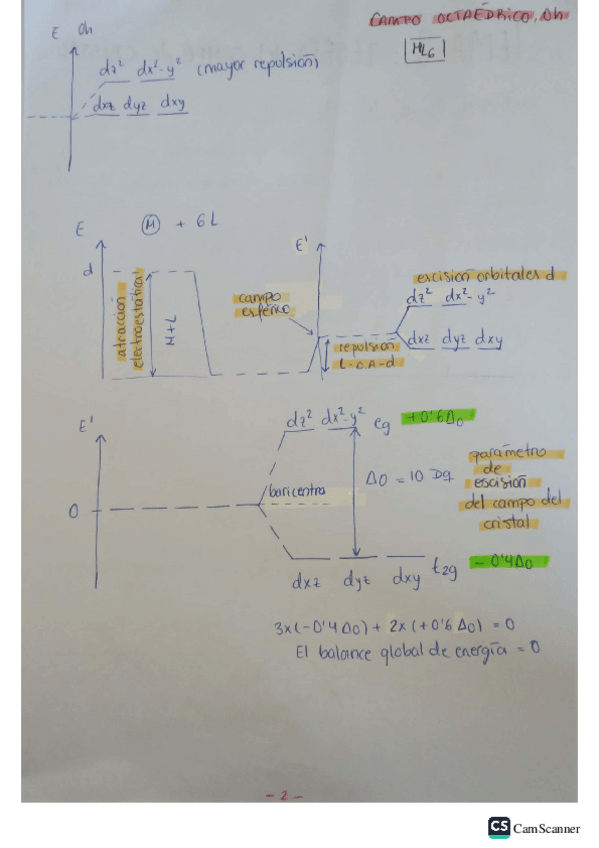 CAMPO OCTAÉDRICO, Oh
ML6
E Oh
dz² dx²-y² (mayor repulsión)
dxz dyz dxy
E M + 6L
d
atracción electroestática
M+L
E'
campo
esférico
repulsión
excisión orbitales d
dz² dx²-y²
dxz dyz dxy
E'
dz² dx²-y² eg +0'6Δo
0
baricentro
ΔO = 10 Dq
parámetro
de
escisión
del campo del
cristal
dxz dyz dxy t2g -0'4Δo
3x(-0'4Δo) + 2x(+0'6Δo) = 0
El balance global de energía = 0
- 2 -
CS CamScanner